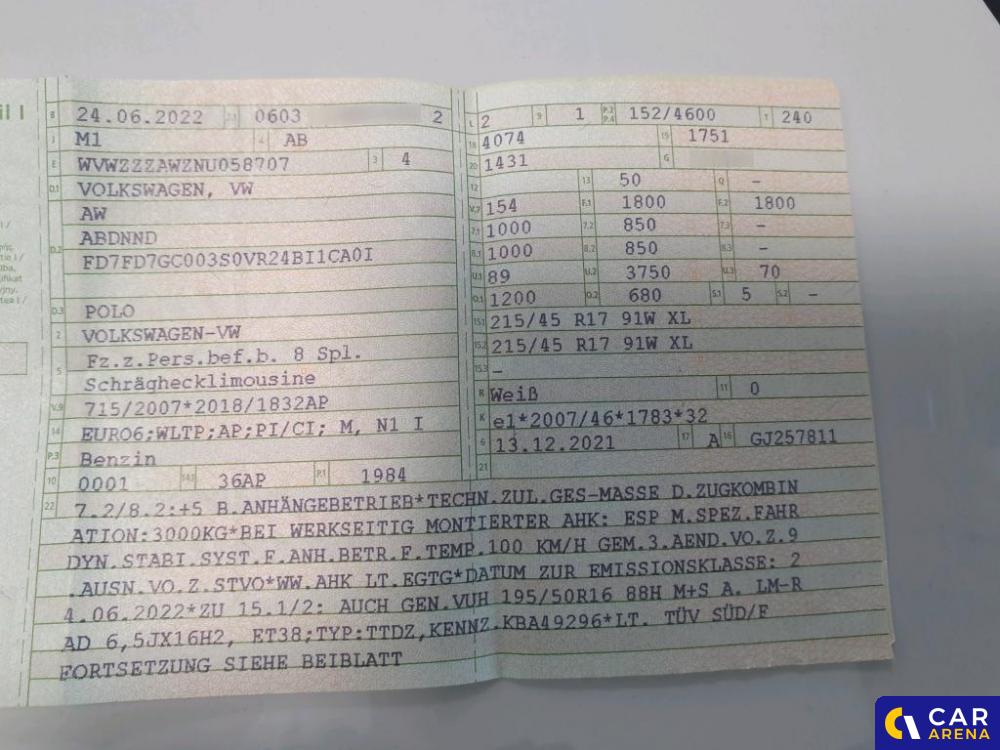 il I
B 24.06.2022 2.1 0603 2 L 2 9 1 P.2 P.4 152/4600 T 240
J M1 4 AB 18 4074 19 1751
E WVWZZZAWZNU058707 3 4 20 1431 G
D.1 VOLKSWAGEN, VW 12 13 50 Q –
AW V.7 154 F.1 1800 F.2 1800
D.2 ABDNND 7.1 1000 7.2 850 7.3 –
FD7FD7GC003S0VR24BI1CA0I 8.1 1000 8.2 850 8.3 –
U.1 89 U.2 3750 U.3 70
D.3 POLO O.1 1200 O.2 680 S.1 5 S.2 –
2 VOLKSWAGEN-VW 15.1 215/45 R17 91W XL
5 Fz.z.Pers.bef.b. 8 Spl. 15.2 215/45 R17 91W XL
Schräghecklimousine 15.3 –
V.9 715/2007*2018/1832AP R Weiß 11 0
14 EURO6;WLTP;AP;PI/CI; M, N1 I K e1*2007/46*1783*32
P.3 Benzin 6 13.12.2021 17 A 16 GJ257811
10 0001 14.1 36AP P.1 1984 21
22 7.2/8.2:+5 B.ANHÄNGEBETRIEB*TECHN.ZUL.GES-MASSE D.ZUGKOMBIN
ATION:3000KG*BEI WERKSEITIG MONTIERTER AHK: ESP M.SPEZ.FAHR
DYN.STABI.SYST.F.ANH.BETR.F.TEMP.100 KM/H GEM.3.AEND.VO.Z.9
.AUSN.VO.Z.STVO*WW.AHK LT.EGTG*DATUM ZUR EMISSIONSKLASSE: 2
4.06.2022*ZU 15.1/2: AUCH GEN.VUH 195/50R16 88H M+S A. LM-R
AD 6,5JX16H2, ET38;TYP:TTDZ,KENNZ.KBA49296*LT. TÜV SÜD/F
FORTSETZUNG SIEHE BEIBLATT
CAR
ARENA